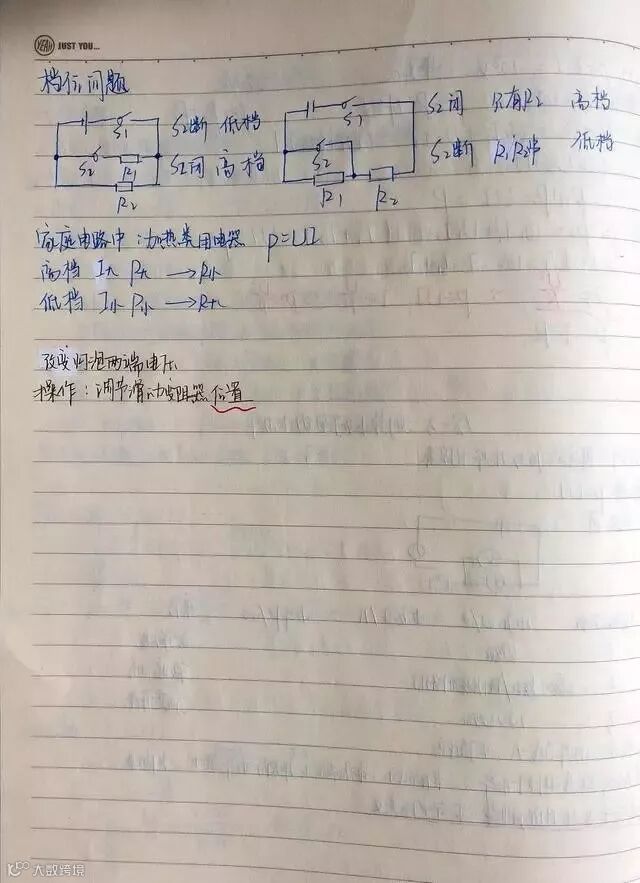 YEAH JUST YOU...
档位问题
S1
S2断 低档
S2 R1
S2闭 高档
R2
S1
S2闭 只有R2 高档
S2
S2断 R1R2串 低档
R1 R2
家庭电路中 加热类用电器 P=UI
高档 I大 P大 → R小
低档 I小 P小 → R大
改变灯泡两端电压
操作：调节滑动变阻器位置
大数跨境